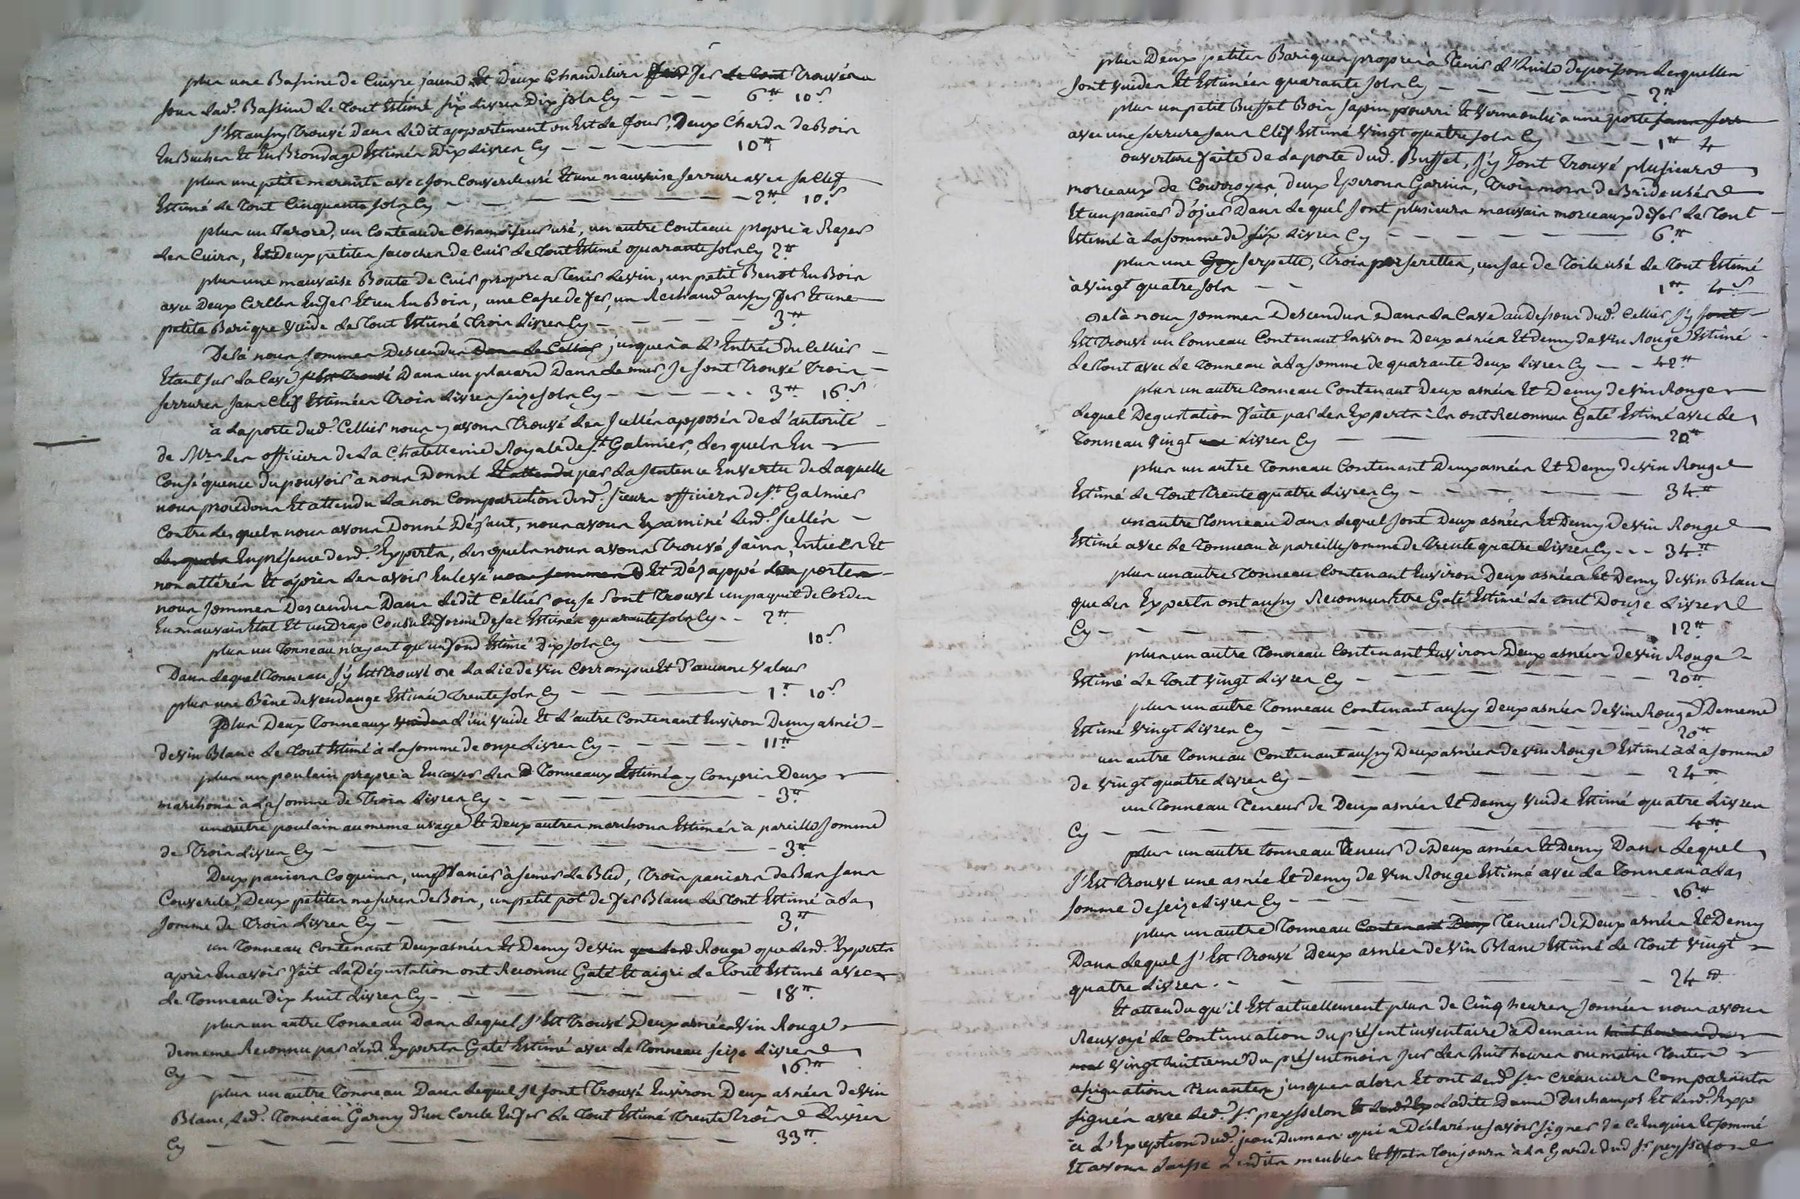 plus une Bassine de Cuivre jaune et Deux Chandeliers fer le tout trouvés
sous lad. Bassine le tout Estimé six Livres dix sols Cy 6# 10s
S'Est ausy trouvé dans ledit appartement ou Est le four, Deux Chards de Bois
En Buches Et En Brondage Estimés dix Livres Cy 10#
plus une petite marante avec son Couvercle usé Et une mauvaise serrure avec sa Clef
Estimé Le tout Cinquante sols Cy 2# 10s
plus un tarore, un Couteau de Chamoiseur usé, un autre Couteau propre à Razer
Les Cuirs, Et deux petites sacoches de Cuir le tout Estimé quarante sols Cy 2#
plus une mauvaise Boute de Cuir propre a tenir du vin, un petit Benot En Bois
avec Deux Cercles En fer Et un En Bois, une Casse de fer, un Rechaud ausy fer Et une
petite Barique vuide le tout Estimé trois Livres Cy 3#
De là nous sommes Descendus Dans le Cellier jusques à L'Entrée du Cellier
Etant sur la Cave s'est trouvé Dans un placard Dans le mur se sont trouvé trois
serrures sans Clef Estimées trois Livres seize sols Cy 3# 16s
à La porte dud. Cellier nous y avons trouvé Les scellés apposés de L'autorité
de Mrs Les officiers de La Chatellenie Royale de St Galmier, Lesquels En
Conséquence du pouvoir à nous Donné Et attendu par La sentence En vertu de Laquelle
nous procedons Et attendu La non Comparution desd. sieurs officiers de St Galmier
Contre Lesquels nous avons Donné Défaut, nous avons Examiné Lesd. scellés
Lesquels En présence desd. Experts, Lesquels nous avons trouvé sains, Entiers Et
non attérés Et après Les avoir Enlevé nous sommes D Et Dézappé Les portes
nous sommes Descendus Dans Ledit Cellier ou se sont trouvé un paquet de Cordes
En mauvais Etat Et un drap Cousu En forme de sac Estimés quarante sols Cy 2#
plus un Tonneau n'ayant qu'un fond Estimé Dix sols Cy 10s
Dans Lequel Tonneau s'y Est trouvé de La Lie de vin Corrompue Et d'aucune valeur
plus une Bêne de vendange Estimée trente sols Cy 1# 10s
Plus Deux Tonneaux vuides L'un vuide Et L'autre Contenant Environ Demy asnée
de vin Blanc Le tout Estimé à La somme de onze Livres Cy 11#
plus un poulain propre à Encaver Les D Tonneaux Estimé y Compris Deux
marchons à La somme de trois Livres Cy 3#
un autre poulain au meme usage Et Deux autres marchons Estimés à pareille somme
de trois Livres Cy 3#
Deux paniers Coquins, un Panier à semer Le Bled, trois paniers de Bas sans
Couvercle, Deux petites mesures de Bois, un petit pot de fer Blanc Le tout Estimé à La
somme de trois Livres Cy 3#
un Tonneau Contenant Deux asnées Et Demy de vin que Lesd. Rouge que Lesd. Experts
après En avoir fait La Dégustation ont Reconnu Gaté Et aigri Le tout Estimé avec
Le Tonneau dix huit Livres Cy 18#
plus un autre Tonneau Dans Lequel s'Est trouvé Deux asnées vin Rouge
de meme Reconnu par Lesd. Experts Gaté Estimé avec Le Tonneau seize Livres
Cy 16#
plus un autre Tonneau Dans Lequel se sont trouvé Environ Deux asnées de vin
Blanc, Led. Tonneau Garny d'un Cercle En fer Le tout Estimé trente trois Livres
Cy 33#
plus Deux petites Bariques propres à tenir L'huile de poisson Lesquelles
sont vuides Et Estimées quarante sols Cy 2#
plus un petit Buffet Bois sapin pourri Et vermoulu à une porte sans serr
avec une serrure sans Clef Estimé vingt quatre sols Cy 1# 4
ouverture faite de La porte dud. Buffet, s'y sont trouvé plusieurs
morceaux de Courroyes deux Eperons Garnis, trois mors de Bride usés
Et un panier d'ozier Dans Lequel sont plusieurs mauvais morceaux de fer Le tout
Estimé à La somme de six Livres Cy 6#
plus une serpette, trois serettes, un sac de toile usé Le tout Estimé
à vingt quatre sols 1# 4s
De là nous sommes Descendus Dans La Cave au dessous dud. Cellier s'y sont
Est trouvé un tonneau Contenant Environ Deux asnées Et Demy de vin Rouge Estimé
Le tout avec Le Tonneau à La somme de quarante Deux Livres Cy 42#
plus un autre Tonneau Contenant Deux asnées Et Demy de vin Rouge
Lequel Degustation faite par Les Experts ils ont Reconnus Gaté Estimé avec Le
Tonneau vingt Livres Cy 20#
plus un autre Tonneau Contenant Deux asnées Et Demy de vin Rouge
Estimé Le tout trente quatre Livres Cy 34#
un autre Tonneau Dans Lequel sont Deux asnées Et Demy de vin Rouge
Estimé avec Le Tonneau à pareille somme de trente quatre Livres Cy 34#
plus un autre Tonneau Contenant Environ Deux asnées Et Demy de vin Blanc
que Les Experts ont ausy Reconnus Etre Gaté Estimé Le tout Douze Livres
Cy 12#
plus un autre Tonneau Contenant Environ Deux asnées de vin Rouge
Estimé Le tout vingt Livres Cy 20#
plus un autre Tonneau Contenant ausy Deux asnées de vin Rouge De meme
Estimé vingt Livres Cy 20#
un autre Tonneau Contenant ausy Deux asnées de vin Rouge Estimé à La somme
de vingt quatre Livres Cy 24#
un Tonneau Teneur de Deux asnées Et Demy vuide Estimé quatre Livres
Cy 4#
plus un autre tonneau Teneur de Deux asnées Et Demy Dans Lequel
s'Est trouvé une asnée Et Demy de vin Rouge Estimé avec Le Tonneau à La
somme de seize Livres Cy 16#
plus un autre Tonneau Contenant Deux Teneur de Deux asnées Et Demy
Dans Lequel s'Est trouvé Deux asnées de vin Blanc Estimé Le tout vingt
quatre Livres 24#
Et attendu qu'il Est actuellement plus de Cinq heures sonnées nous avons
Renvoyé La Continuation du présent inventaire à Demain huit heures du
vingt huitieme du présent mois sur Les huit heures du matin toutes
assignations tenantes jusques alors Et ont Lesd. srs créanciers Comparants
signés avec Led. Sr peysselon Et Lesd. Ex Ladite Dame Deschamps Et Lesd. Exps
à L'Exception dud. jean Dumas qui a Déclaré ne savoir signer de ce Enquis Et sommé
Et avons Laissé Lesdits meubles Et Effets toujours à La Garde dud Sr peysselon